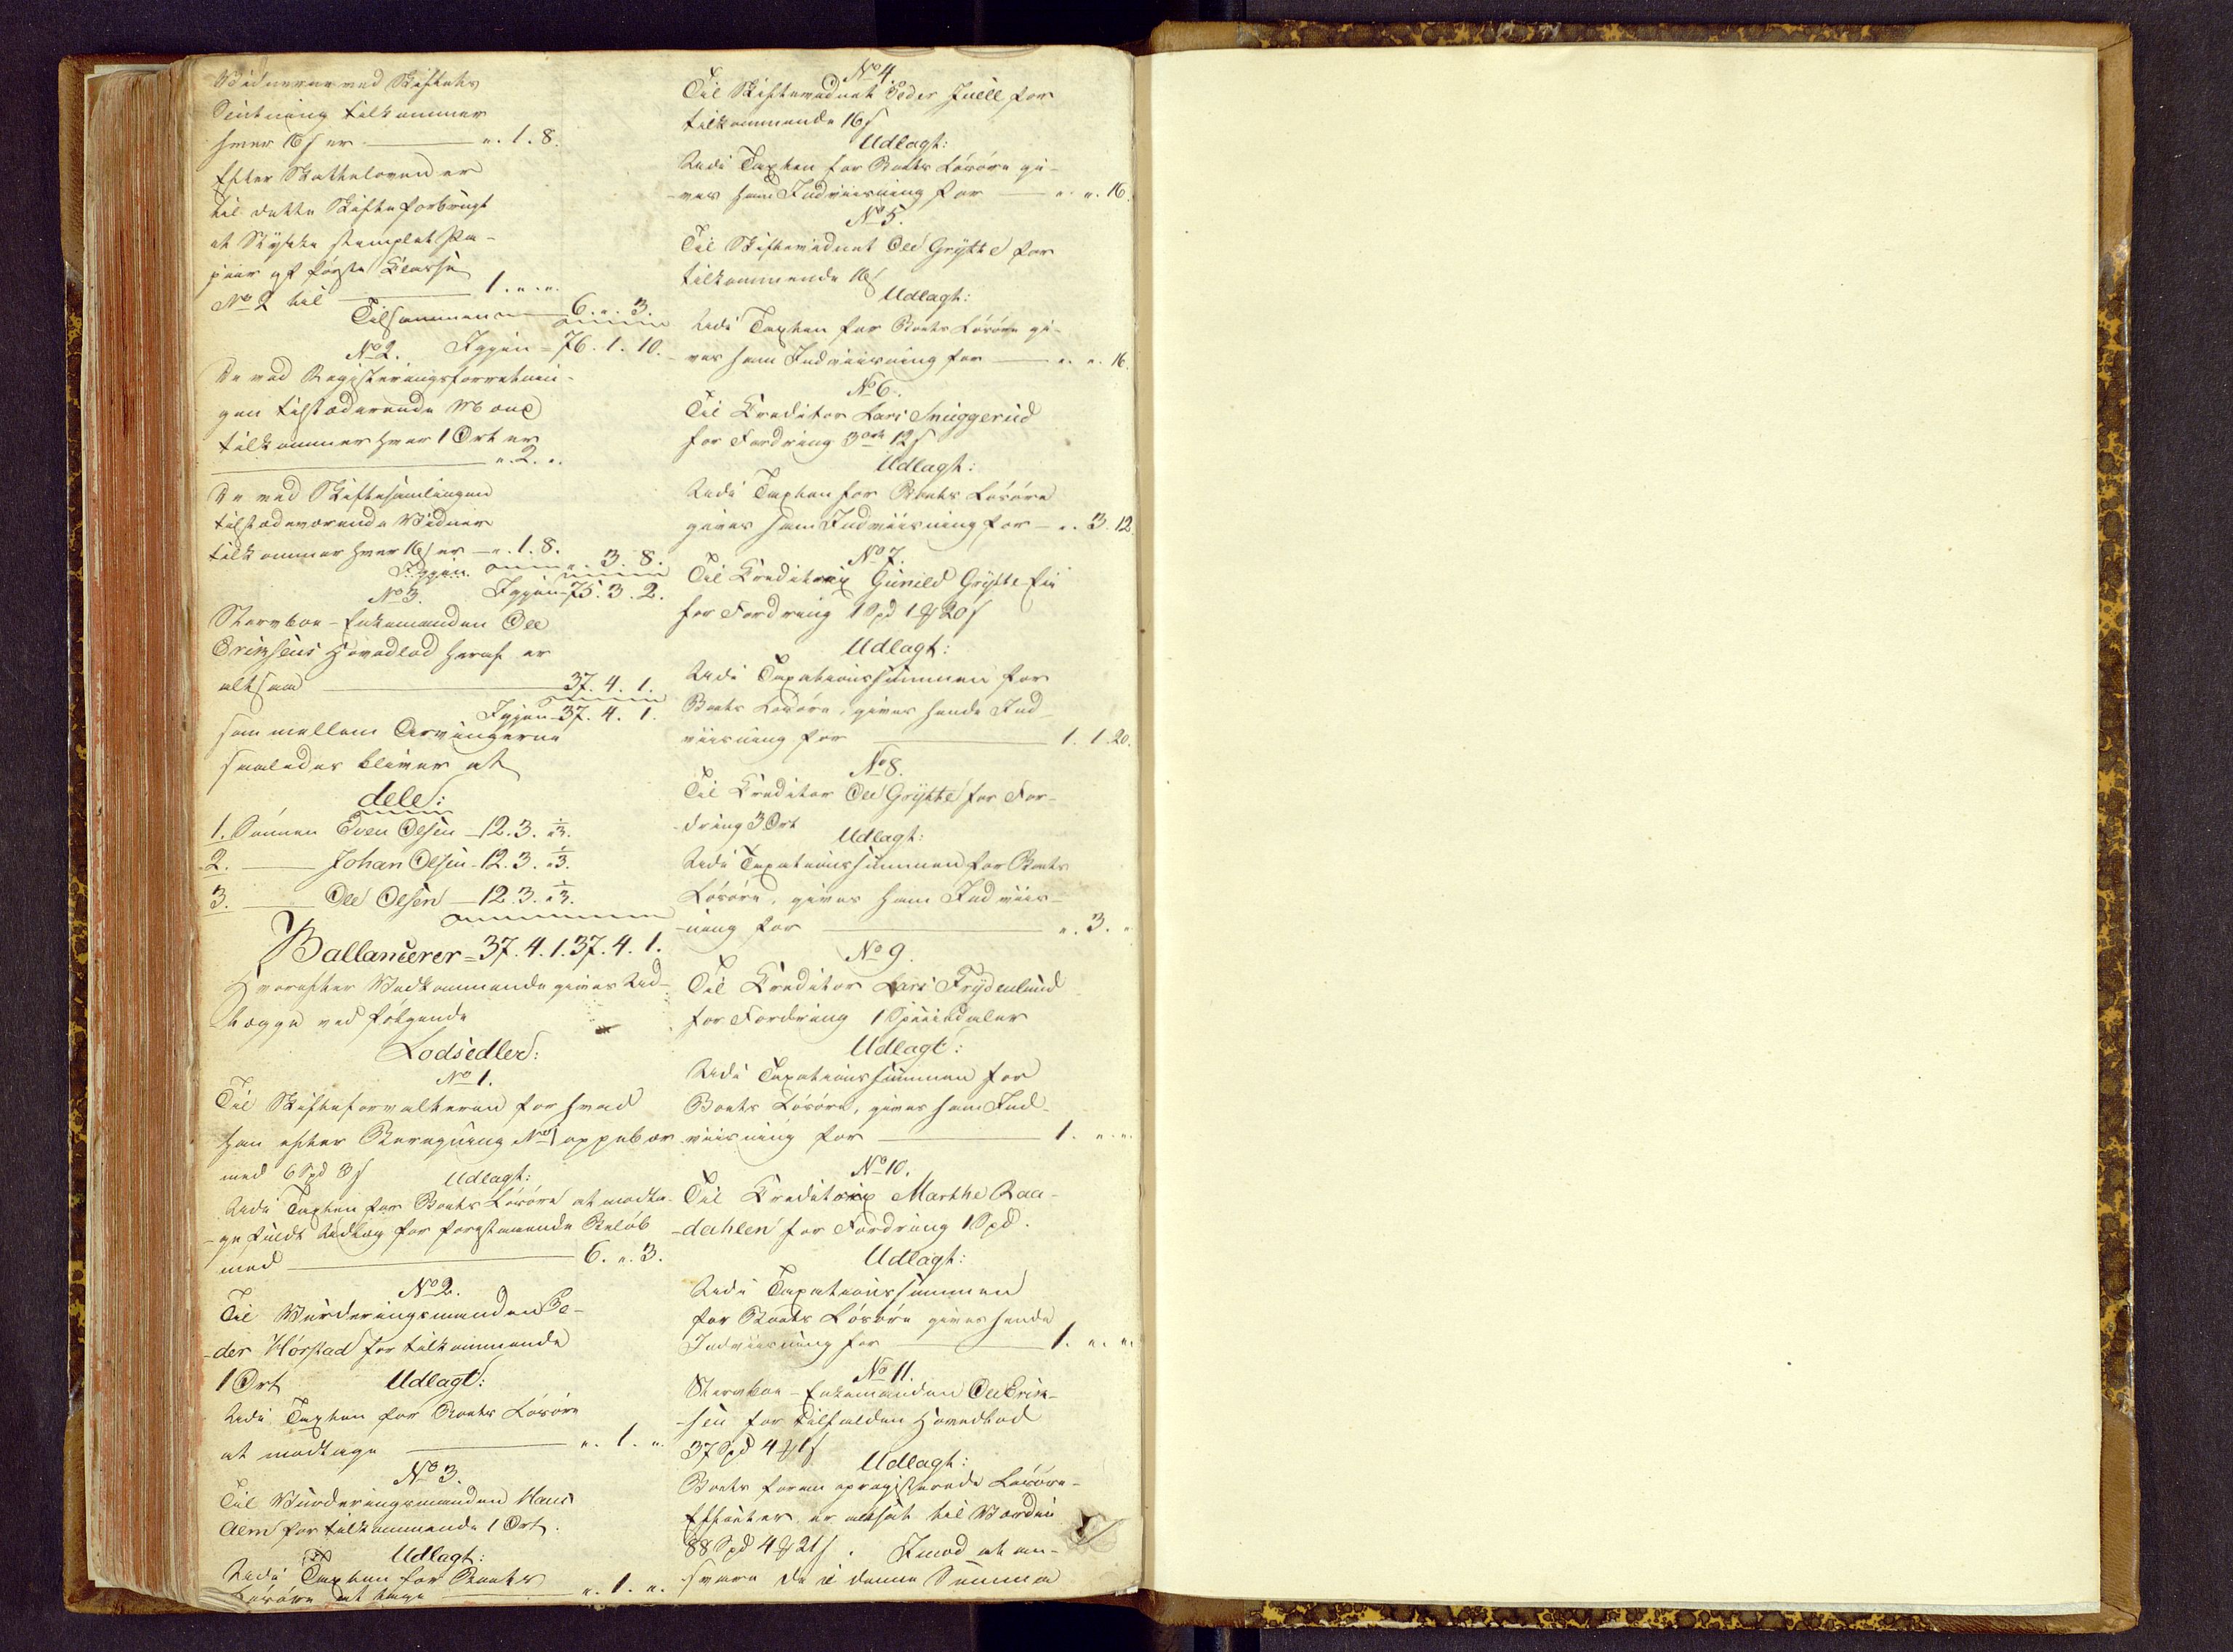 Vidnerne ved Skiftets
Slutning tilkommer
hver 16 s er — „. 1. 8.
Efter Skatteloven er
til dette Skifte forbrugt
et Stykke stemplet Pa-
piir af første Classe
No 2 til — 1. „. „.
Tilsammen — 6. „. 3.
Igjen = 76. 1. 10.
No 2.
De ved Registeringsforretnin-
gen tilstædeværende Mænd
tilkommer hver 1 Ort er
— „. 2. „.
De ved Skiftesamlingen
tilstædeværende Vidner
tilkommer hver 16 s er — „. 1. 8.
„. 3. 8.
Igjen 75. 3. 2.
No 3.
Stervboe-Enkemanden Ole
Erichsens Hovedlod heraf er
altsaa — 37. 4. 1.
Igjen 37. 4. 1.
som mellem Arvingerne
saaledes bliver at
dele:
1. Sønnen Even Olsen — 12. 3. „⅓.
2. — Johan Olsen — 12. 3. „⅓.
3. — Ole Olsen — 12. 3. „⅓.
Ballancerer = 37. 4. 1. 37. 4. 1.
Hvorefter Vedkommende gives Ud-
lægge ved følgende
Lodsedler:
No 1.
Til Skifteforvalteren for hvad
han efter Beregning No 1 oppebær
med 6 Spd 3 s
Udlagt:
Udi Taxten for Boets Løsøre at modta-
ge fuldt Udlæg for foranstaaende Beløb
med — 6. „. 3.
No 2.
Til Vurderingsmanden Pe-
der Horstad for tilkommende
1 Ort
Udlagt:
Udi Taxten for Boets Løsøre
at modtage — „. 1. „.
No 3.
Til Vurderingsmanden Hans
Alm for tilkommende 1 Ort.
Udlagt:
Udi Taxten for Boets
Løsøre at tage — „. 1. „.
No 4
Til Skiftevidnet Peder Juell for
tilkommende 16 s
Udlagt:
Udi Taxten for Boets Løsøre gi-
ves ham Indviisning for — „. „. 16.
No 5.
Til Skiftevidnet Ole Grytte for
tilkommende 16 s
Udlagt:
Udi Taxten for Boets Løsøre gi-
ves ham Indviisning for — „. „. 16.
No 6.
Til Creditor Lars Snuggerud
for Fordring 3 Ort 12 s
Udlagt:
Udi Taxten for Boets Løsøre
gives ham Indviisning for — „. 3. 12
No 7.
Til Creditrix Gunild Grytte Eie
for Fordring 1 Spd 1 ₰ 20 s
Udlagt:
Udi Taxationssummen for
Boets Løsøre, gives hende Ind-
viisning for — 1. 1. 20.
No 8.
Til Creditor Ole Grytte for For-
dring 3 Ort
Udlagt:
Udi Taxationssummen for Boets
Løsøre, gives ham Indviis-
ning for — „. 3. „
No 9.
Til Creditor Lars Frydenlund
for Fordring 1 Speciedaler
Udlagt:
Udi Taxationssummen for
Boets Løsøre, gives ham Ind-
viisning for — 1. „. „.
No 10.
Til Creditorix Marthe Raa-
dahlen for Fordring 1 Spd.
Udlagt:
Udi Taxationssummen
for Boets Løsøre gives hende
Indviisning for — 1. „. „.
No 11.
Stervboe-Enkemanden Ole Erik-
sen for tilfalden Hovedlod
37 Spd 4 ₰ 1 s
Udlagt:
Boets foran opregisterede Løsøre-
Effecter er ansat til Værdie
88 Spd 4 ₰ 21 s. Imod at an-
svare de i denne Summa